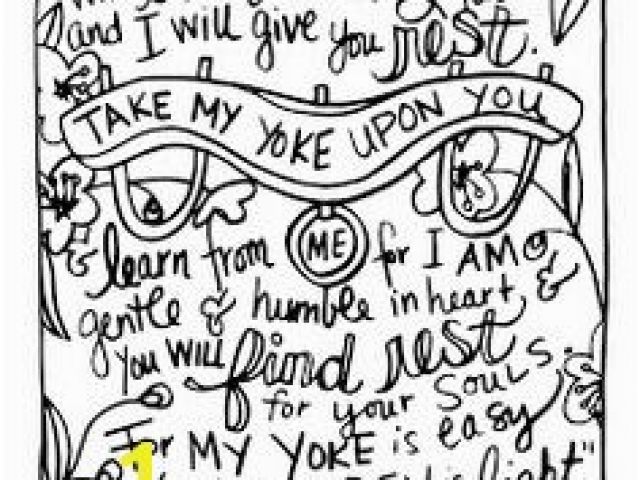 and I will give you rest.
TAKE MY YOKE UPON YOU
& learn from ME for I AM
gentle & humble in heart, &
you will find rest
for your souls.
For MY YOKE is easy
1
light"